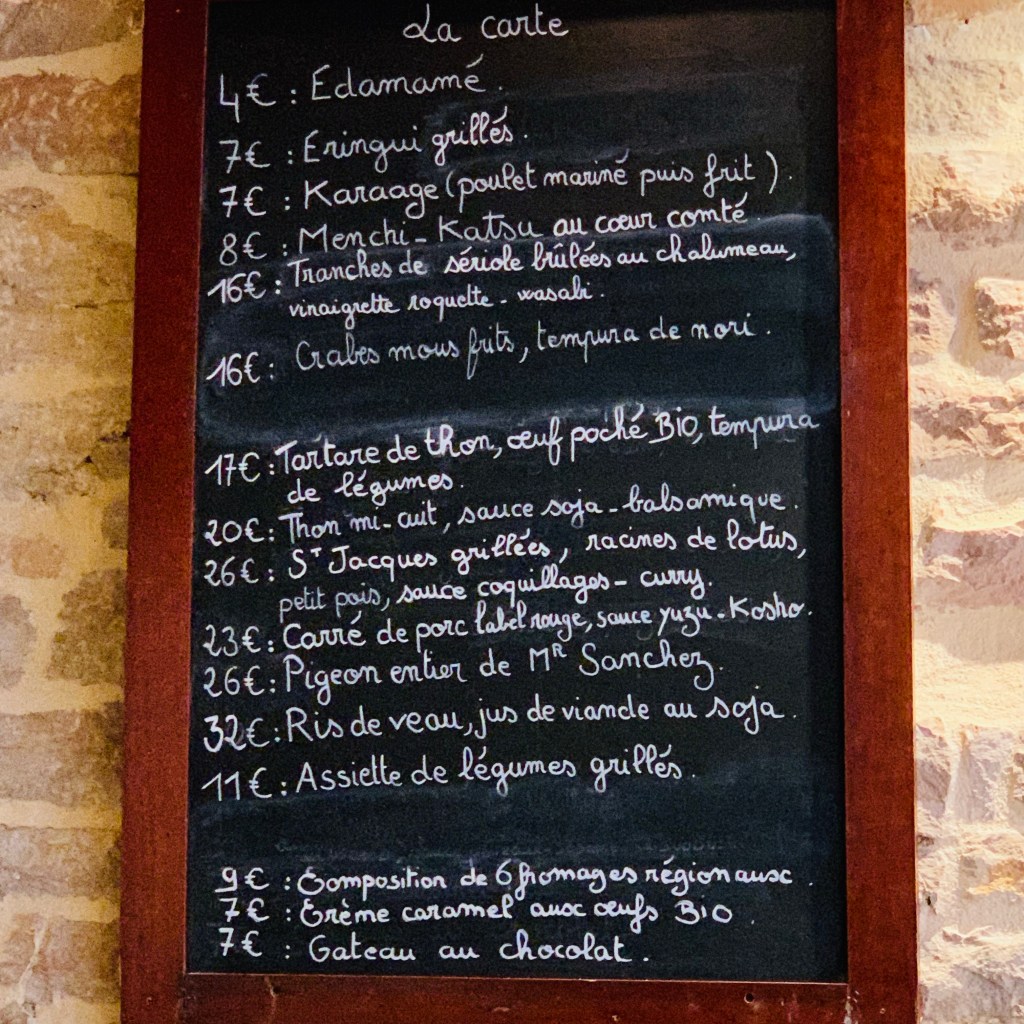 La carte
4€ : Edamamé.
7€ : Eringui grillés.
7€ : Karaage (poulet mariné puis frit).
8€ : Menchi-Katsu au cœur comté.
16€ : Tranches de sériole brûlées au chalumeau,
vinaigrette roquette-wasabi.
16€ : Crabes mous frits, tempura de nori.
17€ : Tartare de thon, œuf poché Bio, tempura
de légumes.
20€ : Thon mi-cuit, sauce soja-balsamique.
26€ : ST Jacques grillées, racines de lotus,
petit pois, sauce coquillages-curry.
23€ : Carré de porc label rouge, sauce yuzu-Kosho.
26€ : Pigeon entier de MR Sanchez.
32€ : Ris de veau, jus de viande au soja.
11€ : Assiette de légumes grillés.
9€ : Composition de 6 fromages régionaux.
7€ : Crème caramel aux œufs Bio.
7€ : Gateau au chocolat.